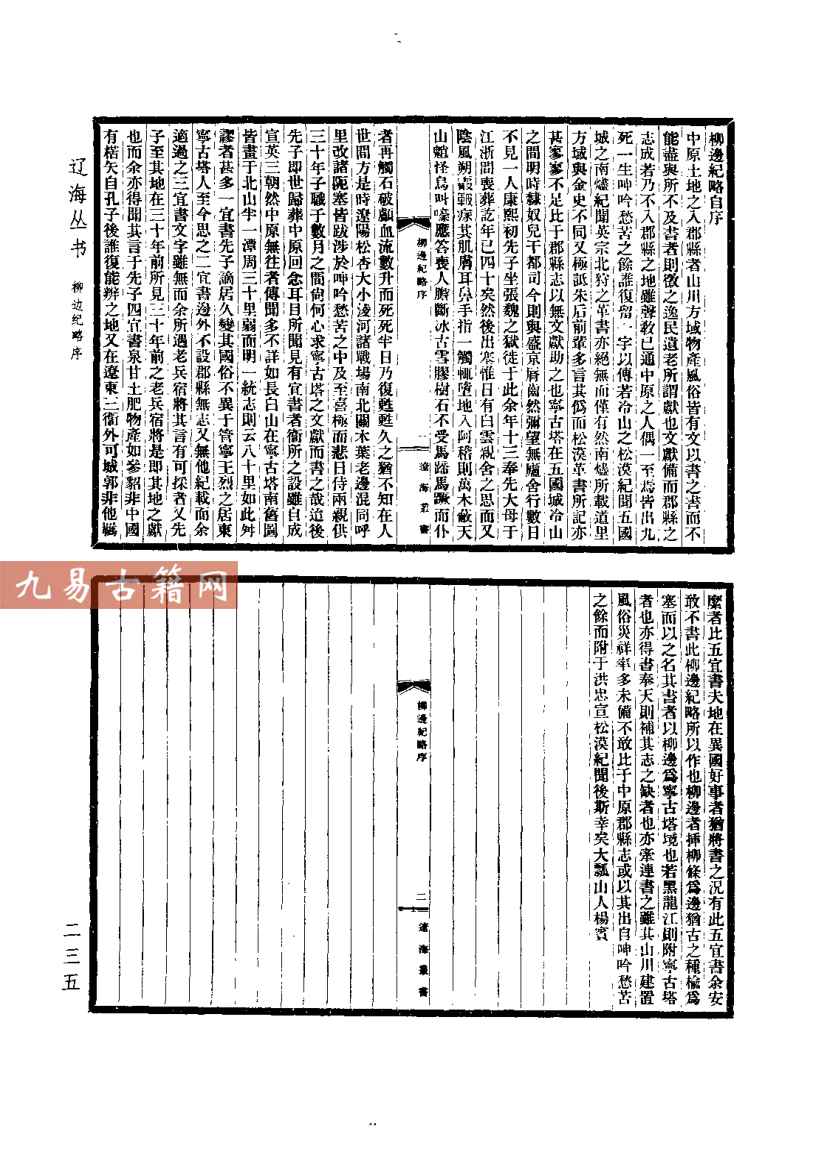 柳邊紀略自序
中原土地之入郡縣者山川方域物產風俗皆有文以書之書而不
能盡與所不及書者則徵之逸民遺老所謂獻也文獻備而郡縣之
志成若乃不入郡縣之地雖聲敎已通中原之人偶一至焉皆出九
死一生呻吟愁苦之餘誰復留一字以傳若冷山之松漠紀聞五國
城之南燼紀聞英宗北狩之革書亦絕無而僅有然南燼所載道里
方域與金史不同又極詆朱后前輩多言其僞而松漠革書所記亦
甚寥寥不足比于郡縣志以無文獻助之也寧古塔在五國城冷山
之間明時隸奴兒干都司今則與盛京脣齒然彌望無廬舍行數日
不見一人康熙初先子坐張魏之獄徙于此余年十三奉先大母于
江浙間喪葬訖年已四十矣然後出塞惟日有白雲親舍之思而又
陰風朔雪皸瘃其肌膚耳鼻手指一觸輒墮地入阿稽則萬木蔽天
山魈怪鳥叫嘷應答喪人膽斷冰古雪膠樹石不受馬蹄馬蹶而仆
柳邊紀略序
一
遼海叢書
者再觸石破顱血流數升而死死半日乃復甦甦久之猶不知在人
世間方是時遼陽松杏大小淩河諸戰場南北關木葉老邊混同呼
里改諸阨塞皆跋涉於呻吟愁苦之中及至喜極而悲日侍兩親供
三十年子職于數月之間尙何心求寧古塔之文獻而書之哉迨後
先子即世歸葬中原回念耳目所聞見有宜書者衞所之設雖自成
宣英三朝然中原無往者傳聞多不詳如長白山在寧古塔南舊圖
皆畫于北山半一潭周三十里弱而明一統志則云八十里如此舛
謬者甚多一宜書先子謫居久變其國俗不異于管寧王烈之居東
寧古塔人至今思之二宜書邊外不設郡縣無志又無他紀載而余
適過之三宜書文字雖無而余所遇老兵宿將其言有可採者又先
子至其地在三十年前所見三十年前之老兵宿將是即其地之獻
也而余亦得聞其言于先子四宜書泉甘土肥物產如參貂非中國
有楛矢自孔子後誰復能辨之地又在遼東三衞外可城郭非他羈
縻者比五宜書夫地在異國好事者猶將書之況有此五宜書余安
敢不書此柳邊紀略所以作也柳邊者挿柳條爲邊猶古之種榆爲
塞而以之名其書者以柳邊爲寧古塔境也若黑龍江則附寧古塔
者也亦得書奉天則補其志之缺者也亦牽連書之雖其山川建置
風俗災祥率多未備不敢比于中原郡縣志或以其出自呻吟愁苦
之餘而附于洪忠宣松漠紀聞後斯幸矣大瓢山人楊賓
柳邊紀略序
二
遼海叢書
辽海丛书
柳边纪略序
二三五
九易古籍网